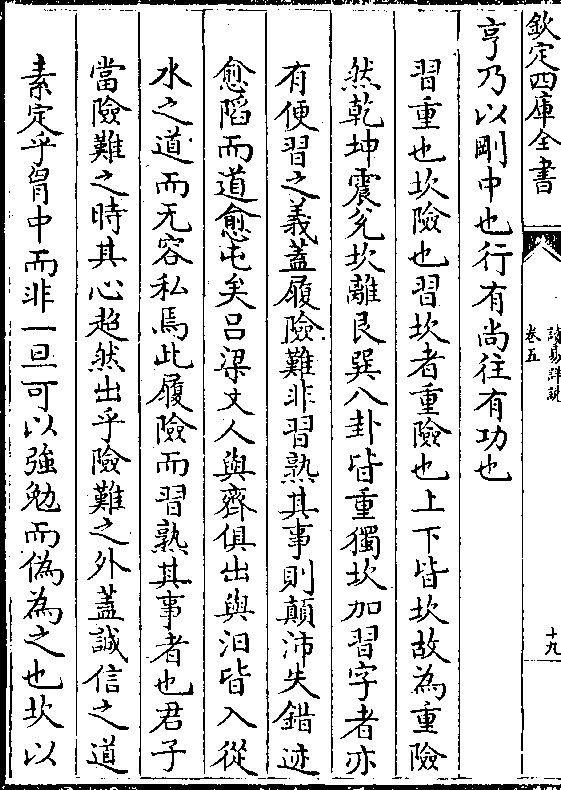 欽定四庫全書
讀易詳說
卷五
十九
亨乃以剛中也行有尚往有功也
習重也坎險也習坎者重險也上下皆坎故為重險
然乾坤震兌坎離艮巽八卦皆重獨坎加習字者亦
有便習之義蓋履險難非習熟其事則顛沛失錯迹
愈蹈而道愈屯矣吕梁丈人與齊俱出與汨皆入從
水之道而无容私焉此履險而習熟其事者也君子
當險難之時其心超然出乎險難之外蓋誠信之道
素定乎胷中而非一旦可以強勉而偽為之也坎以